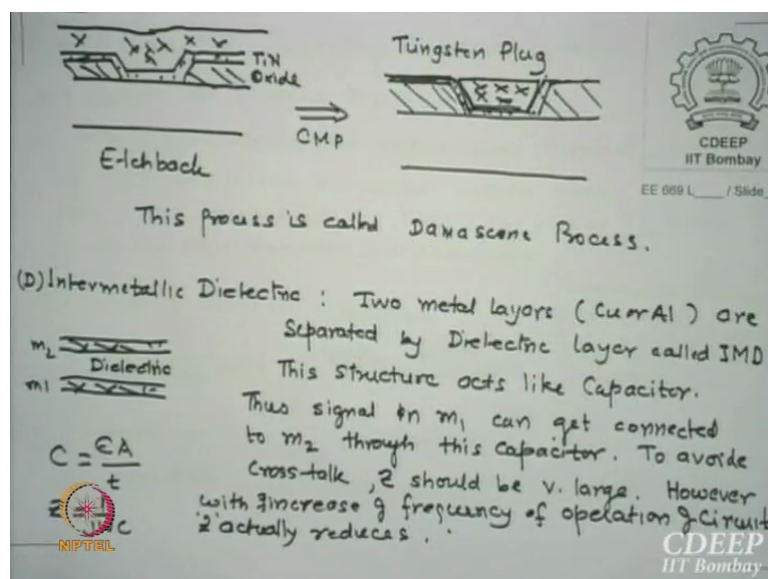 TiN
Oxide
Etchback
CMP
Tungsten Plug
CDEEP
IIT Bombay
EE 669 L____ / Slide_
This process is called Damascene Process.
(D) Intermetallic Dielectric : Two metal layers (Cu or Al) are
separated by Dielectric layer called IMD
This structure acts like Capacitor.
Thus signal in m1 can get connected
to m2 through this capacitor. To avoide
cross-talk, Z should be v. large. However
with increase of frequency of operation of circuit
Z actually reduces.
m2
Dielectric
m1
C = ЄA/t
NPTEL
CDEEP
IIT Bombay